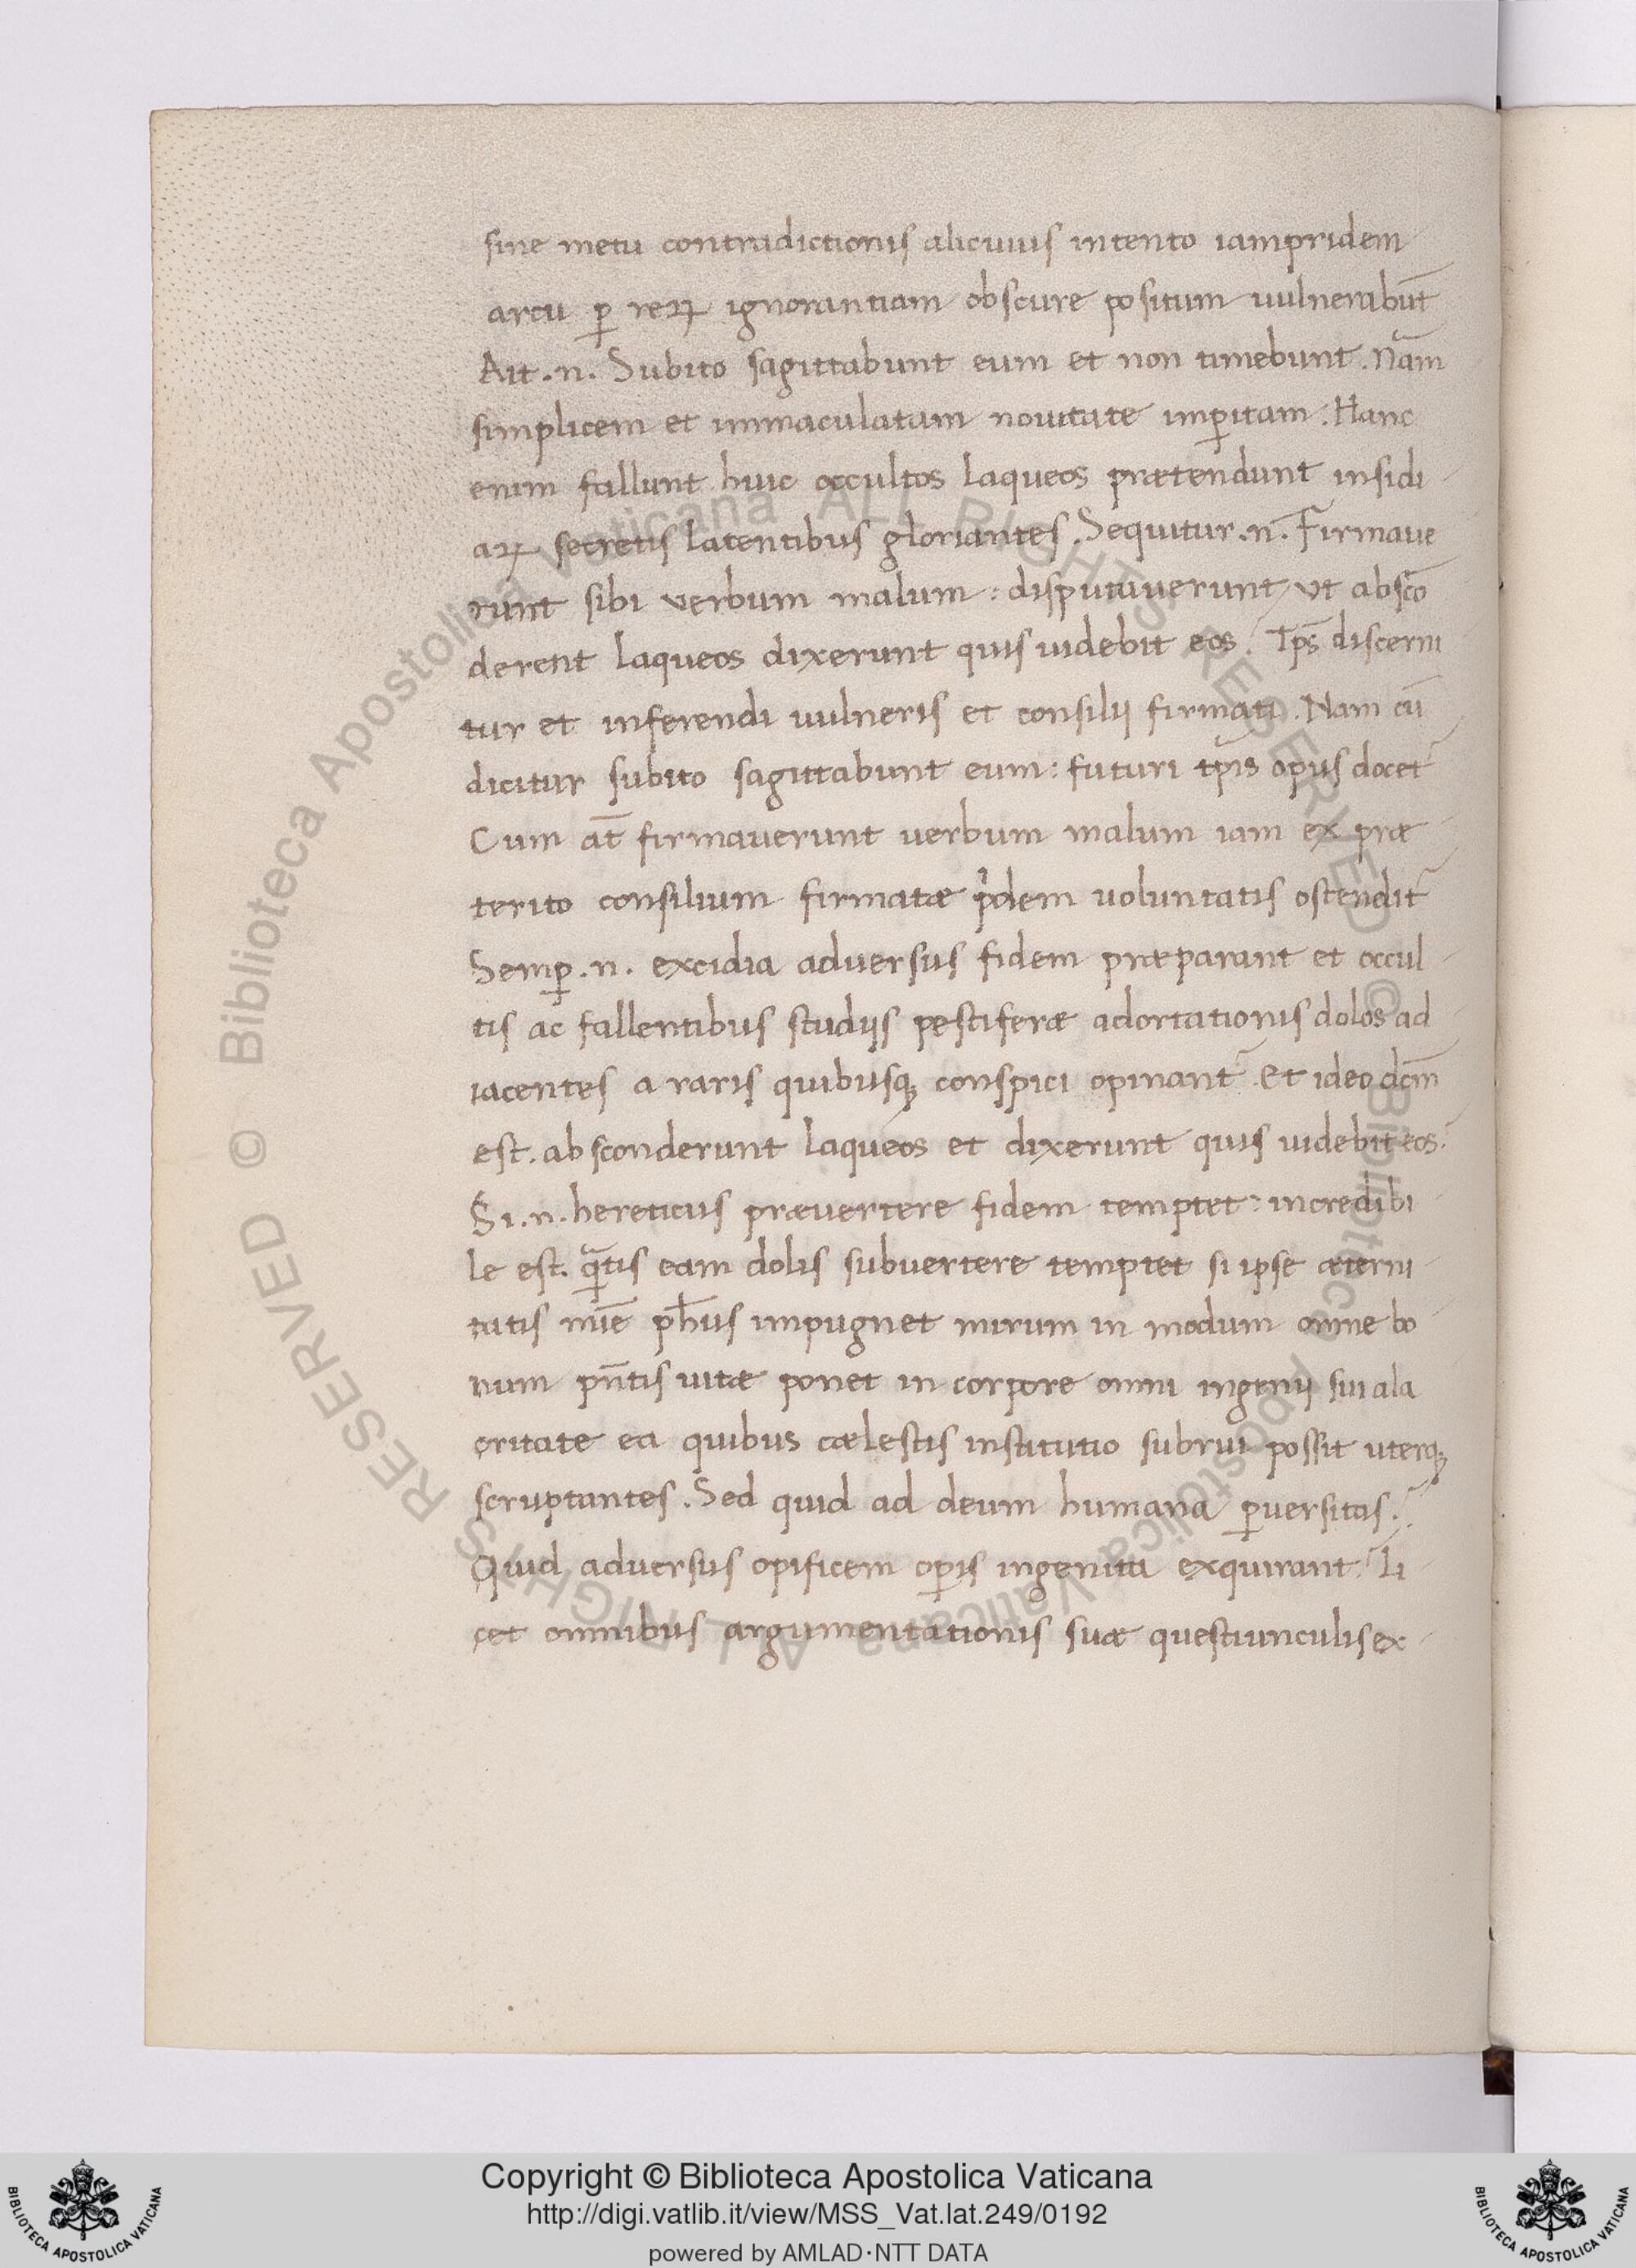 sine metu contradictionis alicuius intento iampridem
arcu ꝑ reꝝ ignorantiam obscure positum uulnerabūt
Ait .n. Subito sagittabunt eum et non timebunt. Nam
simplicem et immaculatam nouitate imꝑitam: Hanc
enim fallunt huic occultos laqueos prætendunt insidi
aꝝ secretis latentibus gloriantes. Sequitur .n. Firmaue
runt sibi verbum malum: disputauerunt vt absco
derent laqueos dixerunt quis uidebit eos. Tps̄ discerni
tur et inferendi uulneris et consilij firmati. Nam cū
dicitur subito sagittabunt eum: futuri tp̄is opus docet᷑
Cum aт̄ firmauerunt verbum malum iam ex præ
terito consilium firmatæ pͥdem uoluntatis ostendit᷑
Semꝑ .n. excidia aduersus fidem præparant et occul
tis ac fallentibus studijs pestiferæ adortationis dolos ad
iacentes a raris quibusqꝫ conspici opinant᷑. Et ideo dcm̄
est. absconderunt laqueos et dixerunt quis uidebit eos.
Si .n. hereticus præuertere fidem temptet: incredibi
le est. qᷓtis eam dolis subuertere temptet si ipse æterni
tatis mīe ph̄us impugnet mirum in modum omne bo
num pn̄tis uitæ ponet in corpore omni ingenij sui ala
critate ea quibus cælestis institutio subrui possit uterqꝫ
scruptantes. Sed quid ad deum humana ꝑuersitas.
Quid aduersus opificem oꝑis ingenita exquirant. Li
cet omnibus argumentationis suæ questiunculis ex
Copyright © Biblioteca Apostolica Vaticana
http://digi.vatlib.it/view/MSS_Vat.lat.249/0192
powered by AMLAD·NTT DATA